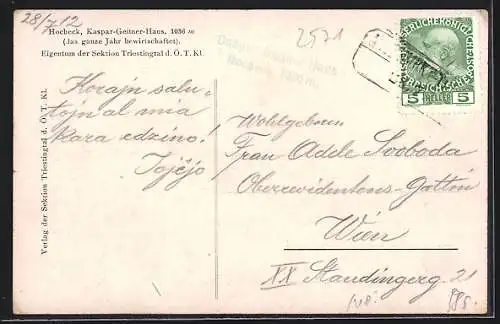 28/7 12
Hocbeck, Kaspar-Geitner-Haus, 1036 m
(Das ganze Jahr bewirtschaftet).
Eigentum der Sektion Triestingtal d. Ö. T. Kl.
2571
5 HELLER 5
Korajn salu-
tojn al mia
kara edzino!
Wohlgeboren
Frau Adele Svoboda
Oberrevidentens-Gattin
Wien
XX Staudingerg. 21
Verlag der Sektion Triestingtal d. Ö. T. Kl.